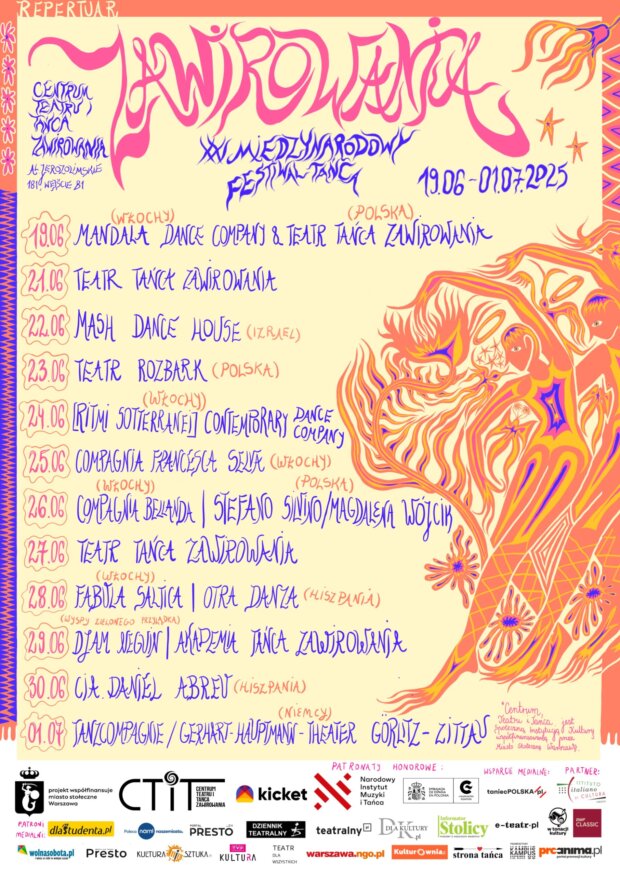 REPERTUAR
ZAWIROWANIA
CENTRUM
TEATRU I
TAŃCA
ZAWIROWANIA
AL. JEROZOLIMSKIE
181B WEJŚCIE B1
XXI MIĘDZYNARODOWY
FESTIWAL TAŃCA
19.06 - 01.07.2025
(WŁOCHY) (POLSKA)
19.06 MANDALA DANCE COMPANY & TEATR TAŃCA ZAWIROWANIA
21.06 TEATR TAŃCA ZAWIROWANIA
22.06 MASH DANCE HOUSE (IZRAEL)
23.06 TEATR ROZBARK (POLSKA)
(WŁOCHY)
24.06 [RITMI SOTTERRANEI] CONTEMPORARY DANCE COMPANY
25.06 COMPAGNIA FRANCESCA SELVA (WŁOCHY)
(WŁOCHY) (POLSKA)
26.06 COMPAGNIA BELLANDA | STEFANO SIVINO/MAGDALENA WÓJCIK
27.06 TEATR TAŃCA ZAWIROWANIA
(WŁOCHY)
28.06 FABULA SALTICA | OTRA DANZA (HISZPANIA)
(WYSPY ZIELONEGO PRZYLĄDKA)
29.06 DJAM NEGUIN | AKADEMIA TAŃCA ZAWIROWANIA
30.06 CIA. DANIEL ABREU (HISZPANIA)
(NIEMCY)
01.07 TANZCOMPAGNIE / GERHART-HAUPTMANN-THEATER GÖRLITZ-ZITTAU
*Centrum
Teatru i Tańca jest
Społeczną Instytucją Kultury
współfinansowaną przez
Miasto Stołeczne Warszawę.
PATRONATY HONOROWE:
WSPARCIE MEDIALNE:
PARTNER:
projekt współfinansuje
miasto stołeczne
Warszawa
CTiT
CENTRUM
TEATRU I
TAŃCA
ZAWIROWANIA
kicket
Narodowy
Instytut
Muzyki
i Tańca
taniecPOLSKA.pl
istituto
italiano
di CULTURA
PATRONI
MEDIALNI:
dlaStudenta.pl
Polska nami rozśpiewana.
PRESTO
DZIENNIK
TEATRALNY
teatralny
DLA KULTURY
Informator
Stolicy
e-teatr.pl
w tonacji
kultury
RMF
CLASSIC
wolnasobota.pl
Presto
KULTURA SZTUKA
TVP
KULTURA
TEATR
DLA
WSZYSTKICH
warszawa.ngo.pl
Kulturownia
strona tańca
KAMPUS
proanima.pl